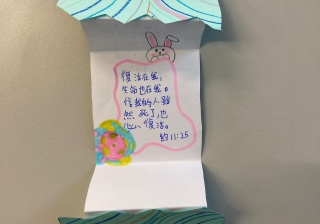 復活在我，
生命也在我。
信我的人雖
然死了，也
必復活。
約11:25